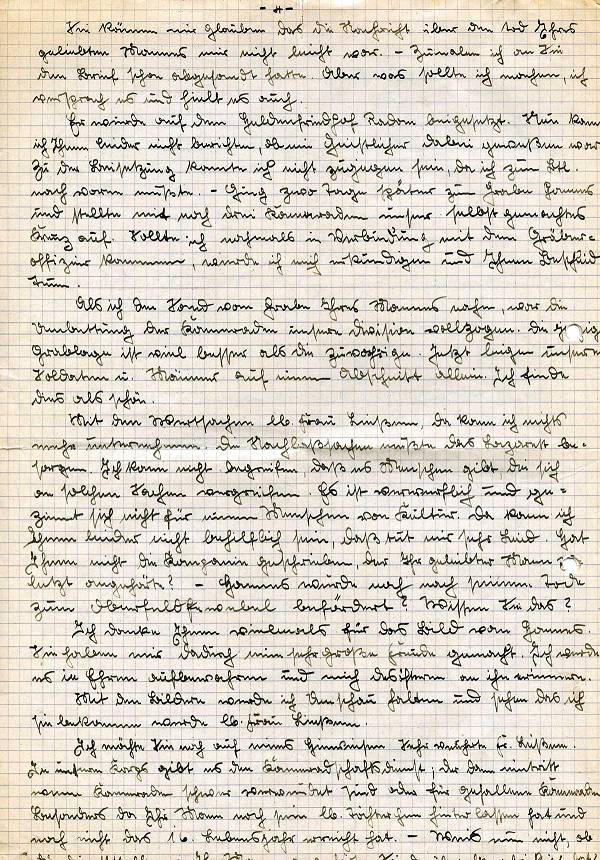 - 4 -
Sie können mir glauben das die Nachricht über den Tod Ihres
geliebten Mannes mir nicht leicht war. - Zumalen ich an Sie
den Brief schon abgesandt hatte. Aber was sollte ich machen, ich
versprach es und hielt es auch.
Er wurde auf dem Heldenfriedhof Radom beigesetzt. Nun kann
ich Ihnen leider nicht berichten, ob ein Geistlicher dabei gewesen war
Zu der Beisetzung konnte ich nicht zugegen sein, da ich zum Btl.
nach vorne mußte. - Ging zwo Tage später zum Grabe Hannes
und stellte mit noch drei Kameraden unser selbstgemachtes
Kreuz auf. Sollte ich nochmals in Verbindung mit dem Gräber-
offizier kommen, werde ich mich erkundigen und Ihnen Bescheid
tun.
Als ich den Sand vom Grabe Ihres Mannes nahm, war die
Umbettung der Kameraden unsere Division vollzogen. Die
Grablage ist viel besser als die zuvorige. Jetzt liegen unsere
Soldaten u. Männer auf einem Abschnitt allein. Ich finde
dies als schön.
Mit den Wertsachen lb. Frau da kann ich nichts
mehr unternehmen. Die Nachlaßsachen müßte das Lazarett be-
sorgen. Ich kann nicht begreifen, daß es Menschen gibt, die sich
an solchen Sachen vergreifen. Es ist verwerflich und ge-
ziemt sich nicht für einen Menschen von Kultur. Da kann ich
Ihnen leider nicht behilflich sein, daß tut mir sehr Leid. Hat
Ihnen nicht die Kompanie geschrieben, der Ihr geliebter Mann
letzt angehörte? - Hannes wurde noch nach seinem Tode
zum Oberfeldwebel befördert? Wissen Sie das?
Ich danke Ihnen vielmals für das Bild von Hannes.
Sie haben mir dadurch eine sehr große Freude gemacht. Ich werde
es in Ehren aufbewahren und mich desöftern an ihn erinnern.
Mit den Bildern werde ich Umschau halten und sehen das ich
sie bekommen werde lb. Frau
Ich möchte Sie noch auf eines hinweisen Sehr verehrte Fr.
In unserem Korps gibt es den Kameradschaftsdienst, der dann eintritt
wenn Kameraden schwer verwundet sind oder für gefallene Kameraden
Besonders da Ihr Mann noch sein lb. Töchterchen hinterlassen hat und
noch nicht das 16. Lebensjahr erreicht hat. - Weis nun nicht, ob